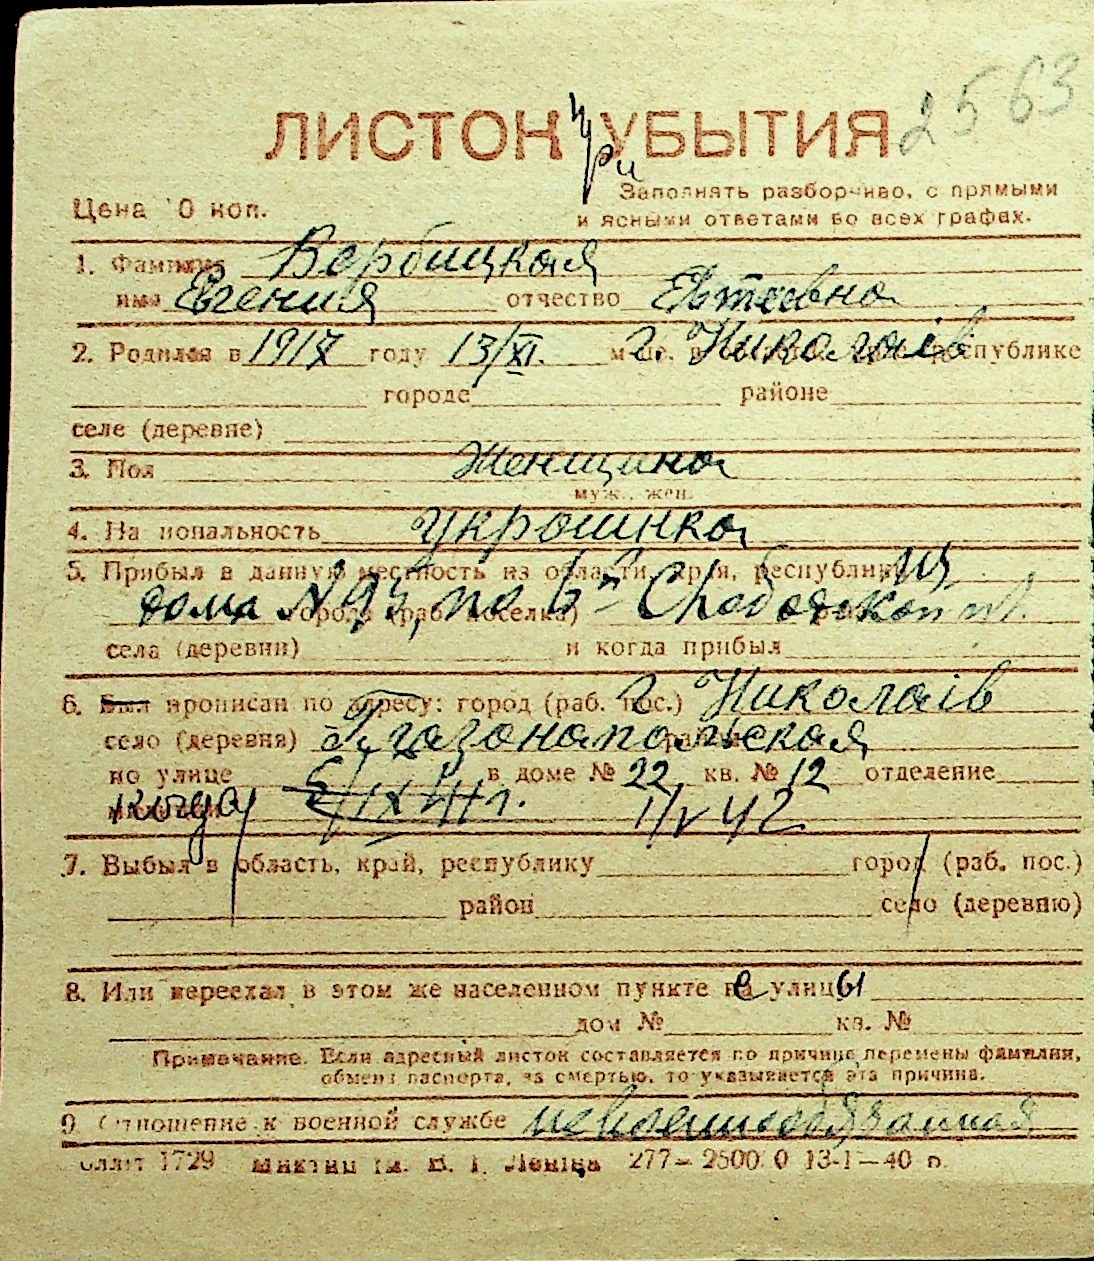 2563
ЛИСТОК при УБЫТИЯ
Цена 10 коп.
Заполнять разборчиво, с прямыми
и ясными ответами во всех графах.
1. Фамилия Вербицкая
имя Евгения отчество
2. Родился в 1917 году 13/XI. г. Николаів республике
городе районе
селе (деревне)
3. Пол Женщина
муж., жен.
4. Национальность украинка
5. Прибыл в данную местность из области, края, республики из
дома № по 6й Слободской ул.
города (раб. поселка)
села (деревни) и когда прибыл
6. Был прописан по адресу: город (раб. пос.) г. Николаів
село (деревня)
по улице в доме № 22 кв. № 12 отделение
милиции когда 5/IX 41 г. 1/V 42
7. Выбыл в область, край, республику город (раб. пос.)
район село (деревню)
8. Или переехал в этом же населенном пункте с улицы
дом № кв. №
Примечание. Если адресный листок составляется по причине перемены фамилии,
обмена паспорта, за смертью, то указывается эта причина.
9. Отношение к военной службе невоеннообязанная
1729 им. В. І. Леніна 277—2500 0 13-I—40 р.